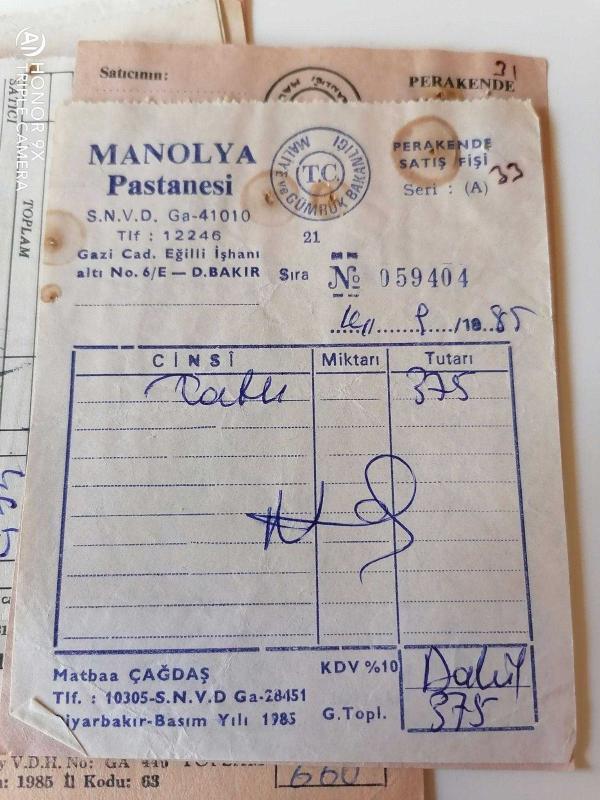 HONOR 9X
TRIPLE CAMERA
SATICI
TOPLAM
Satıcının:
PERAKENDE
31
MANOLYA
Pastanesi
S.N.V.D. Ga-41010
Tlf : 12246
Gazi Cad. Eğilli İşhanı
altı No. 6/E — D.BAKIR
T.C.
MALİYE ve GÜMRÜK BAKANLIĞI
21
PERAKENDE
SATIŞ FİŞİ
Seri : (A) 33
Sıra No 059404
9 /19 85
CİNSİ Miktarı Tutarı
Tatlı 375
KDV %10 Dahil
G.Topl. 375
Matbaa ÇAĞDAŞ
Tlf. : 10305-S.N.V.D Ga-28451
Diyarbakır-Basım Yılı 1985
V.D.H. No: GA 440 TOPLAM
: 1985 İl Kodu: 63
660